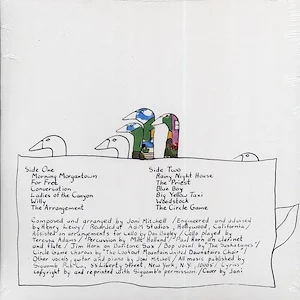 Side One
Morning Morgantown
For Free
Conversation
Ladies of the Canyon
Willy
The Arrangement
Side Two
Rainy Night House
The Priest
Blue Boy
Big Yellow Taxi
Woodstock
The Circle Game
Composed and arranged by Joni Mitchell / Engineered and advised
by Henry Lewy / Recorded at A&M Studios, Hollywood, California /
Assisted on arrangements for Cello by Don Bagley / Cello played by
Teresa Adams / Percussion by Milt Holland / Paul Horn on Clarinet
and Flute / Jim Horn on Baritone Sax / Bop vocal by "The Saskatunes"
Circle Game chorus by "The Lookout Mountain United Downstairs Choir" /
Other voices, guitar and piano by Joni Mitchell / All music published by
Siquomb Pub. Corp, 55 Liberty Street, New York, N.Y. 10005 /
copyright by and reprinted with Siquomb's permission / Cover by Joni